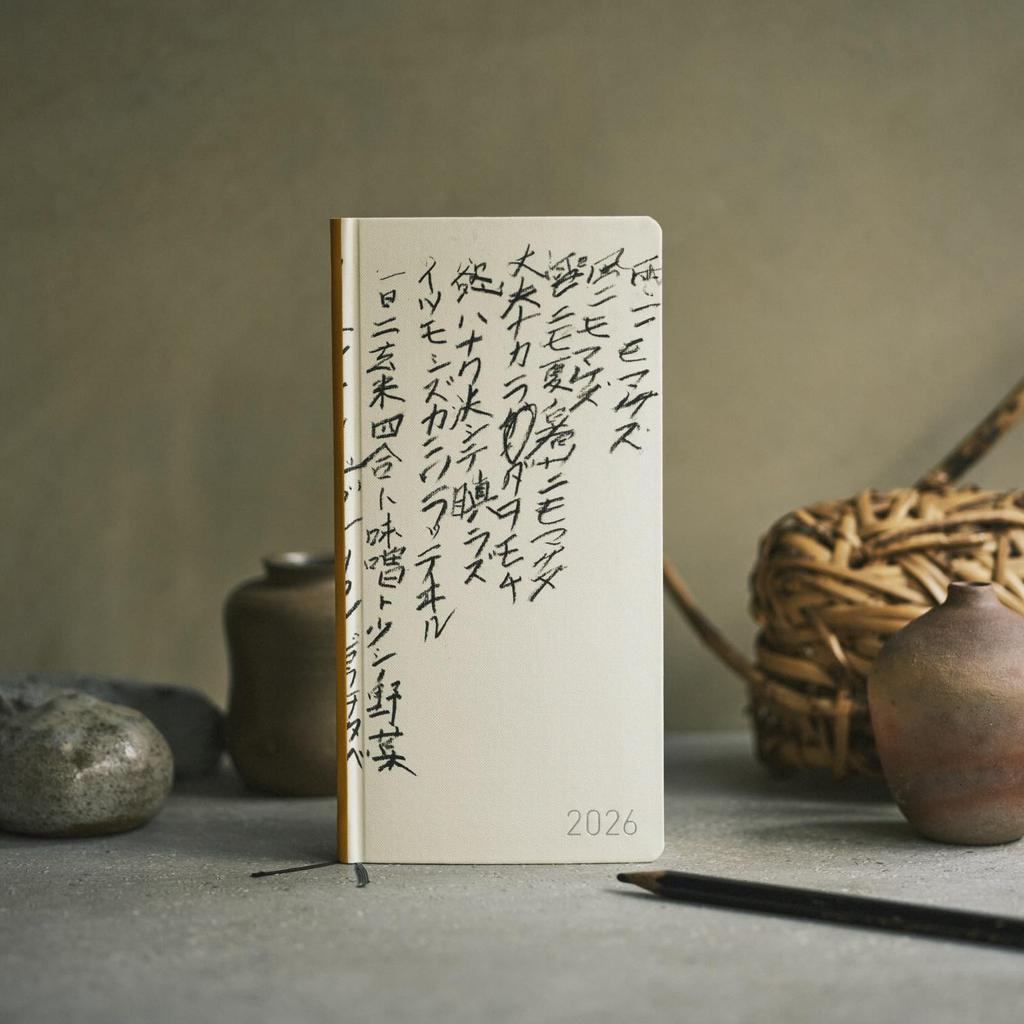 雨ニモマケズ
風ニモマケズ
雪ニモ夏ノ暑サニモマケヌ
丈夫ナカラダヲモチ
欲ハナク決シテ瞋ラズ
イツモシズカニワラッテヰル
一日ニ玄米四合ト味噌ト少シノ野菜
タベ
2026